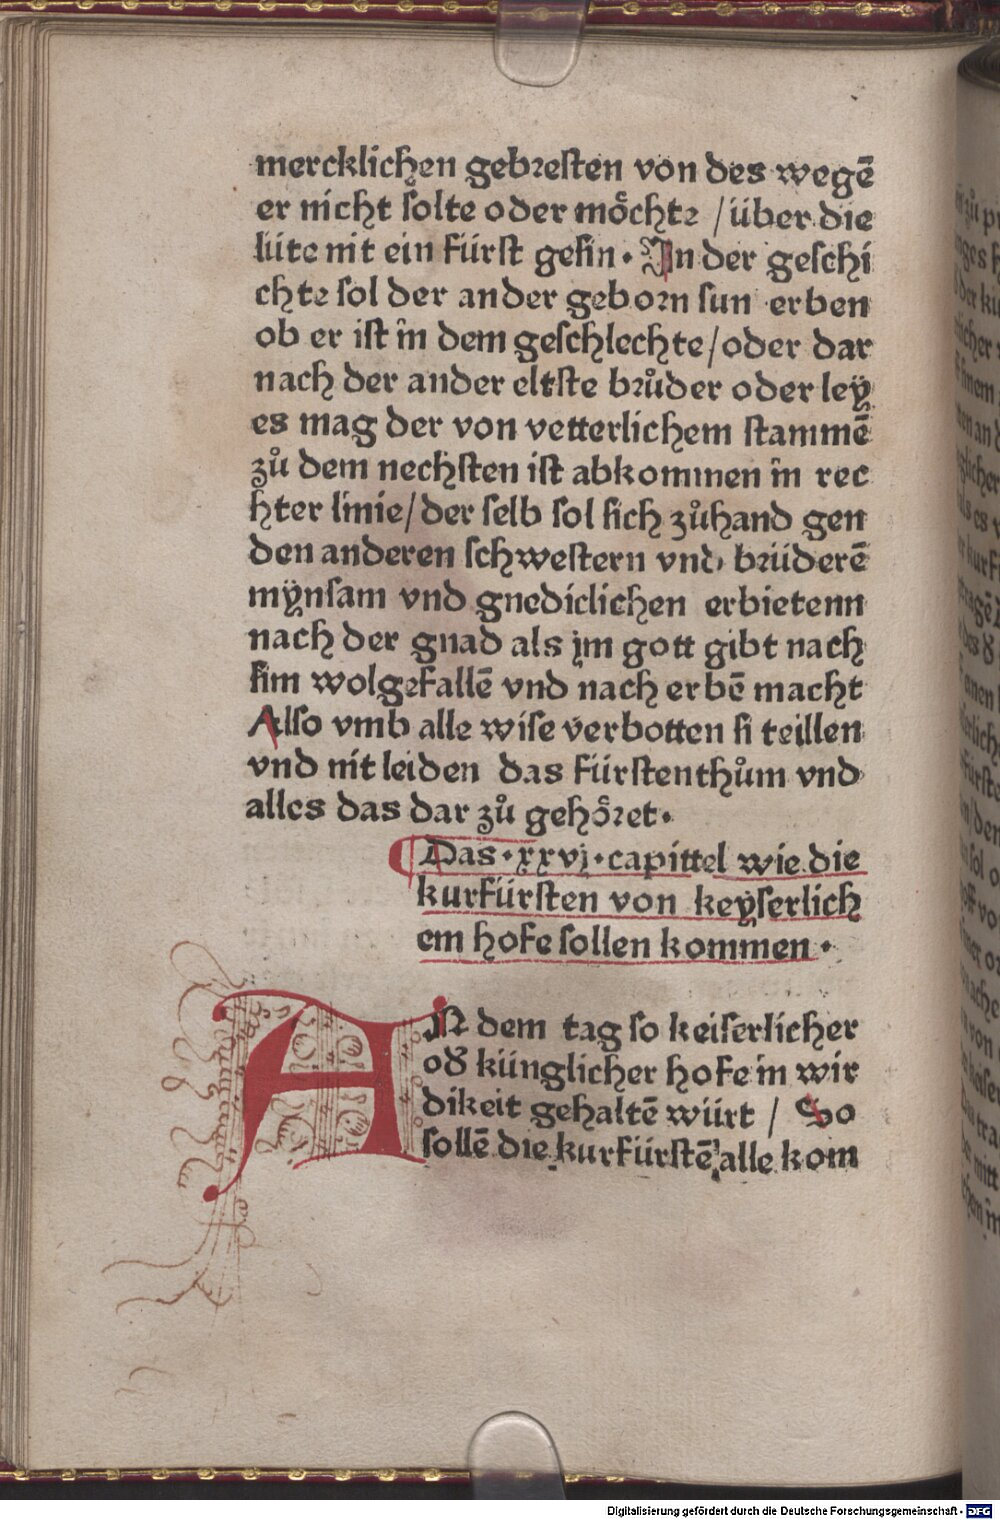 mercklichen gebresten von des wegē
er nicht solte oder moͤchte / über die
lüte nit ein fürst gesin · In der geschi
chte sol der ander geborn sun erben
ob er ist in dem geschlechte / oder dar
nach der ander eltste bruͦder oder ley
es mag der von vetterlichem stammē
zuͦ dem nechsten ist abkommen in rec
hter linie / der selb sol sich zuͦhand gen
den anderen schwestern vnd brüderē
mÿnsam vnd gnediclichen erbietenn
nach der gnad als jm gott gibt nach
sim wolgefallē vnd nach erbē macht
Also vmb alle wise verbotten si teillen
vnd nit leiden das fürstenthuͦm vnd
alles das dar zuͦ gehoͤret ·
Das · xxvj · capittel wie die
kurfürsten von keÿserlich
em hofe sollen kommen ·
AN dem tag so keiserlicher
od' künglicher hofe in wir
dikeit gehaltē würt / So
sollē die kurfürstē alle kom
Digitalisierung gefördert durch die Deutsche Forschungsgemeinschaft - DFG